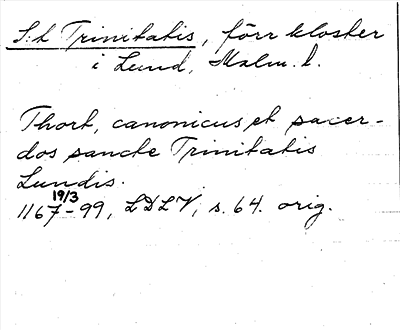 S:t Trinitatis, förr kloster
i Lund, Malm. l.
Thort, canonicus et sacer-
dos sancte Trinitatis
Lundis.
19/3
1167-99, LDLV, s. 64. orig.